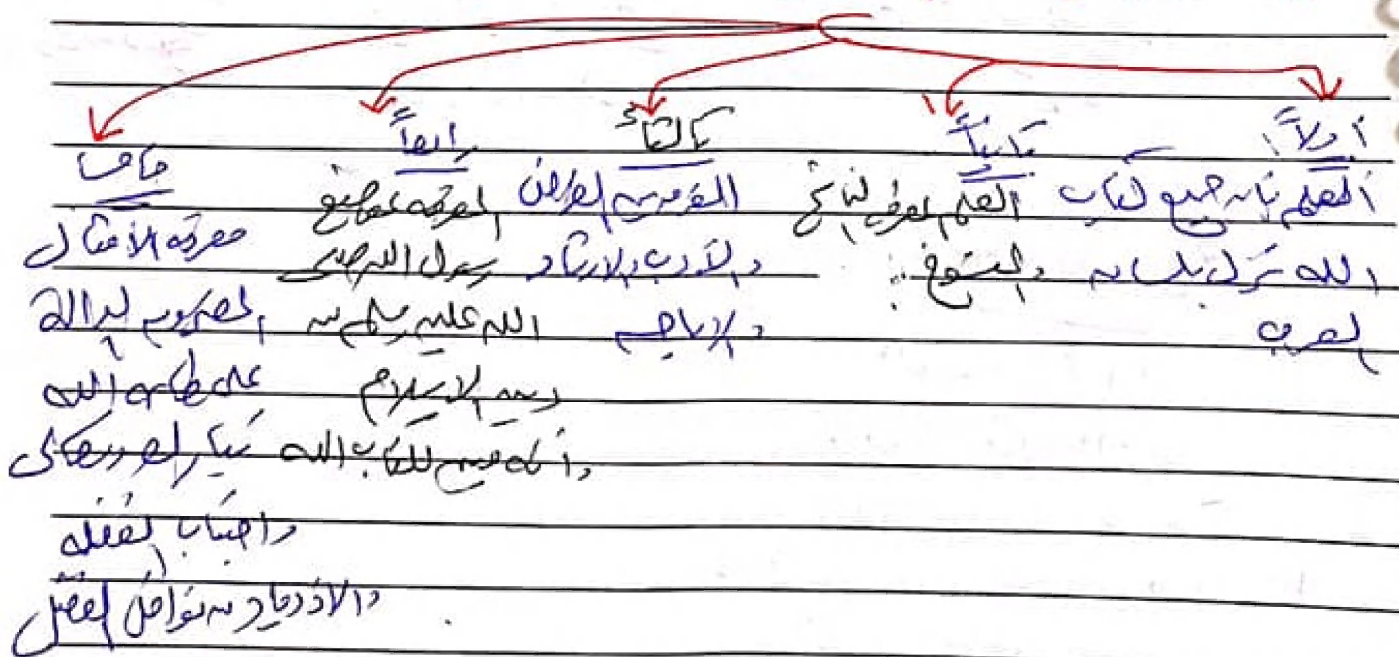 أولاً:
العلم بأن جميع كتاب
الله نزل بلسان
العرب
ثانياً
العلم بمعرفة الناسخ
والمنسوخ
ثالثاً
الفرض
والأدب والإرشاد
والإباحة
رابعاً
المعرفة
رسول الله صلى
الله عليه وسلم من
دين الإسلام
لكتاب الله
خامسا
معرفة الأمثال
المضروبة الدالة
على طاعة الله
تبارك وتعالى
واجتناب الغفلة
والازدياد من نوافل الفضل